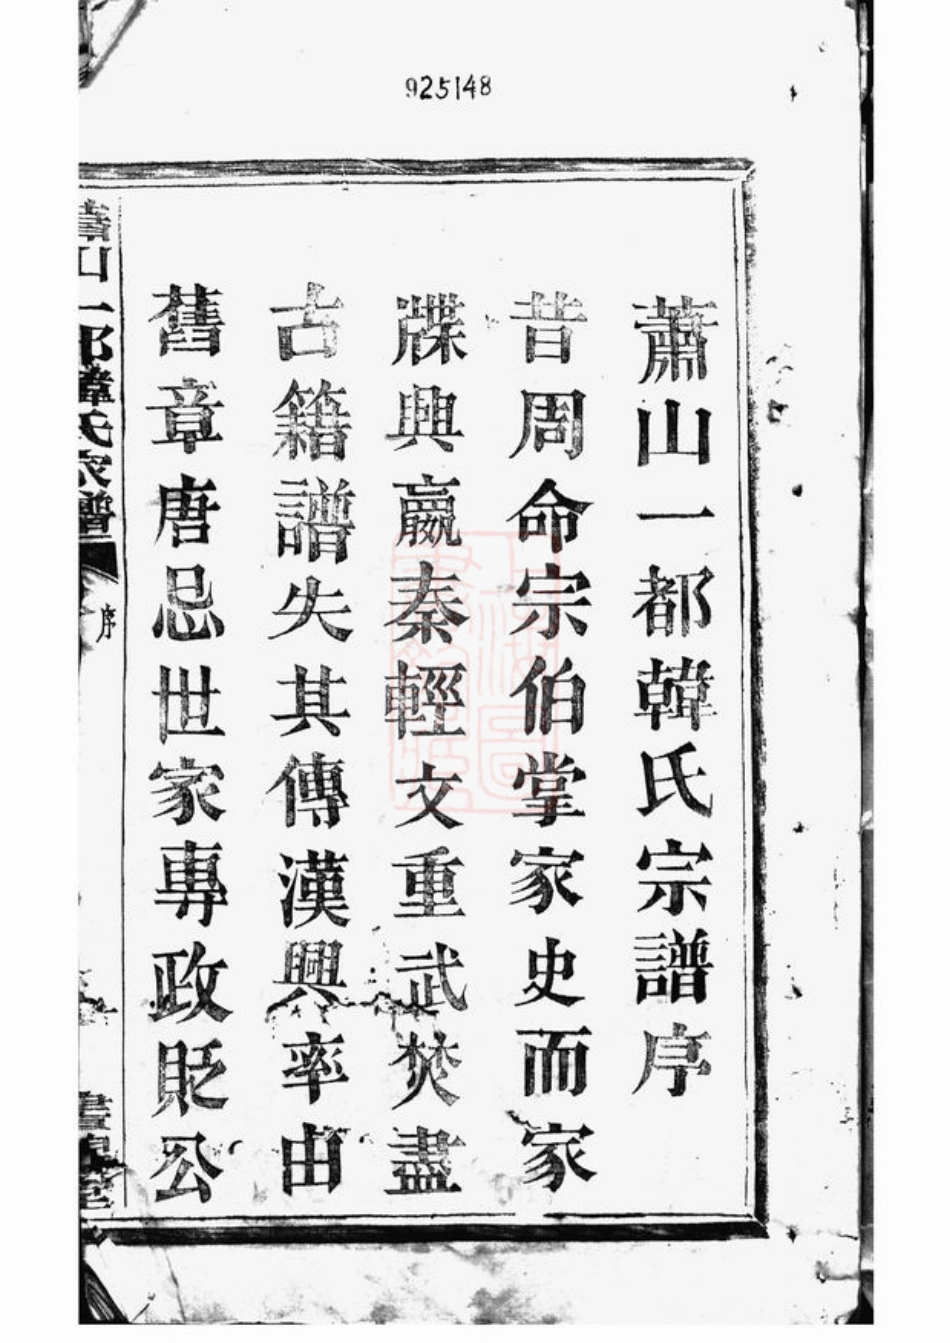 925148
蕭山一都韓氏宗譜序
昔周命宗伯堂家史而家
牒興嬴秦輕文重武焚盡
古籍譜失其傳漢興率由
舊章唐忌世家專政貶公
蕭山一都韓氏家譜
序